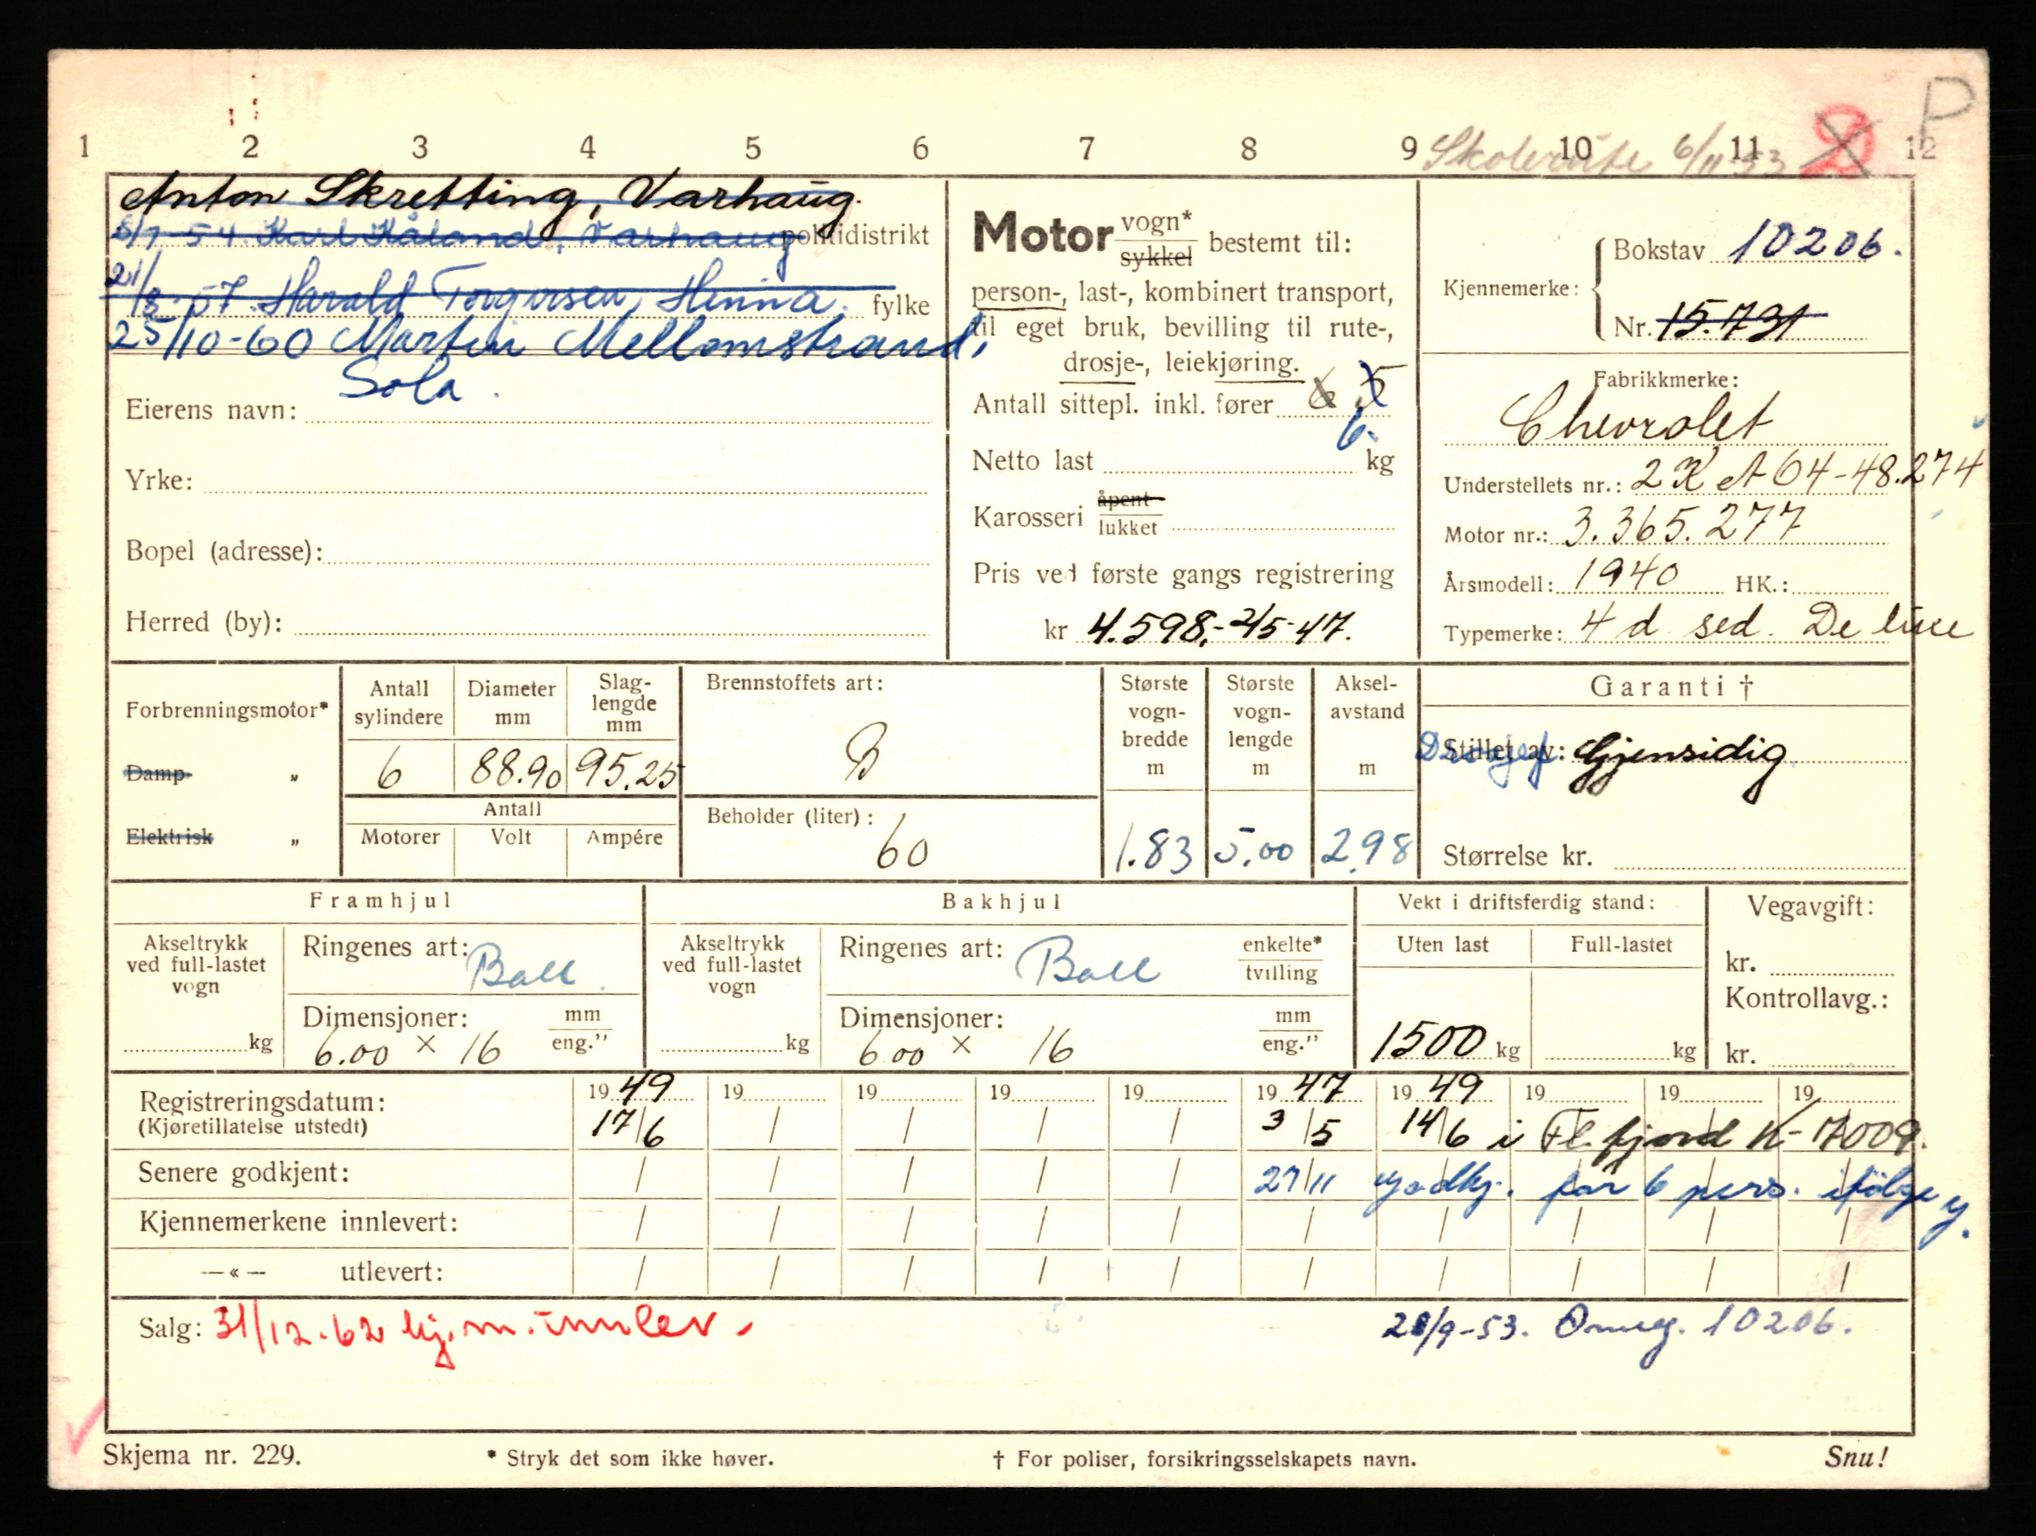 P
1 2 3 4 5 6 7 8 9 10 11 12
Skolerute 6/11 53 2
Anton Skretting, Varhaug.
5/1-54. Karl Kåland, Varhaug politidistrikt
21/8-57 Harald Torgersen, Hinna. fylke
25/10-60 Martin Mellomstrand,
Sola.
Eierens navn:
Yrke:
Bopel (adresse):
Herred (by):
Motor vogn* sykkel bestemt til:
person-, last-, kombinert transport,
til eget bruk, bevilling til rute-,
drosje-, leiekjøring.
Antall sittepl. inkl. fører 6 5
6.
Netto last kg
Karosseri åpent lukket
Pris ved første gangs registrering
kr 4.598,- 2/5-47.
Kjennemerke: Bokstav 10206.
Nr. 15.731
Fabrikkmerke:
Chevrolet
Understellets nr.: 2 K A 64-48.274
Motor nr.: 3.365.277
Årsmodell: 1940 HK.:
Typemerke: 4 d sed. De luxe
Forbrenningsmotor*
Damp „
Elektrisk „
Antall sylindere Diameter mm Slag-lengde mm
6 88.90 95.25
Antall
Motorer Volt Ampére
Brennstoffets art:
B
Beholder (liter):
60
Største vogn-bredde m Største vogn-lengde m Aksel-avstand m
1.83 5.00 2.98
Garanti †
Stillet av: Gjensidig
Størrelse kr.
Framhjul
Akseltrykk ved full-lastet vogn
kg
Ringenes art: Ball.
Dimensjoner: mm eng."
6.00 × 16
Bakhjul
Akseltrykk ved full-lastet vogn
kg
Ringenes art: Ball enkelte* tvilling
Dimensjoner: mm eng."
6.00 × 16
Vekt i driftsferdig stand:
Uten last Full-lastet
1500 kg kg
Vegavgift:
kr.
Kontrollavg.:
kr.
Registreringsdatum: 19 49 19 19 19 19 19 47 19 49 19 19 19
(Kjøretillatelse utstedt) 17/6 / / / / 3/5 14/6 i Fl.fjord K-17009.
Senere godkjent: / / / / / 27/11 godkj. for 6 pers. ifölge
Kjennemerkene innlevert: / / / / / / / / / /
—«— utlevert: / / / / / / / / / /
Salg: 31/12.62 kj.m. innlev. 28/9-53. Omreg. 10206.
Skjema nr. 229. * Stryk det som ikke høver. † For poliser, forsikringsselskapets navn. Snu!